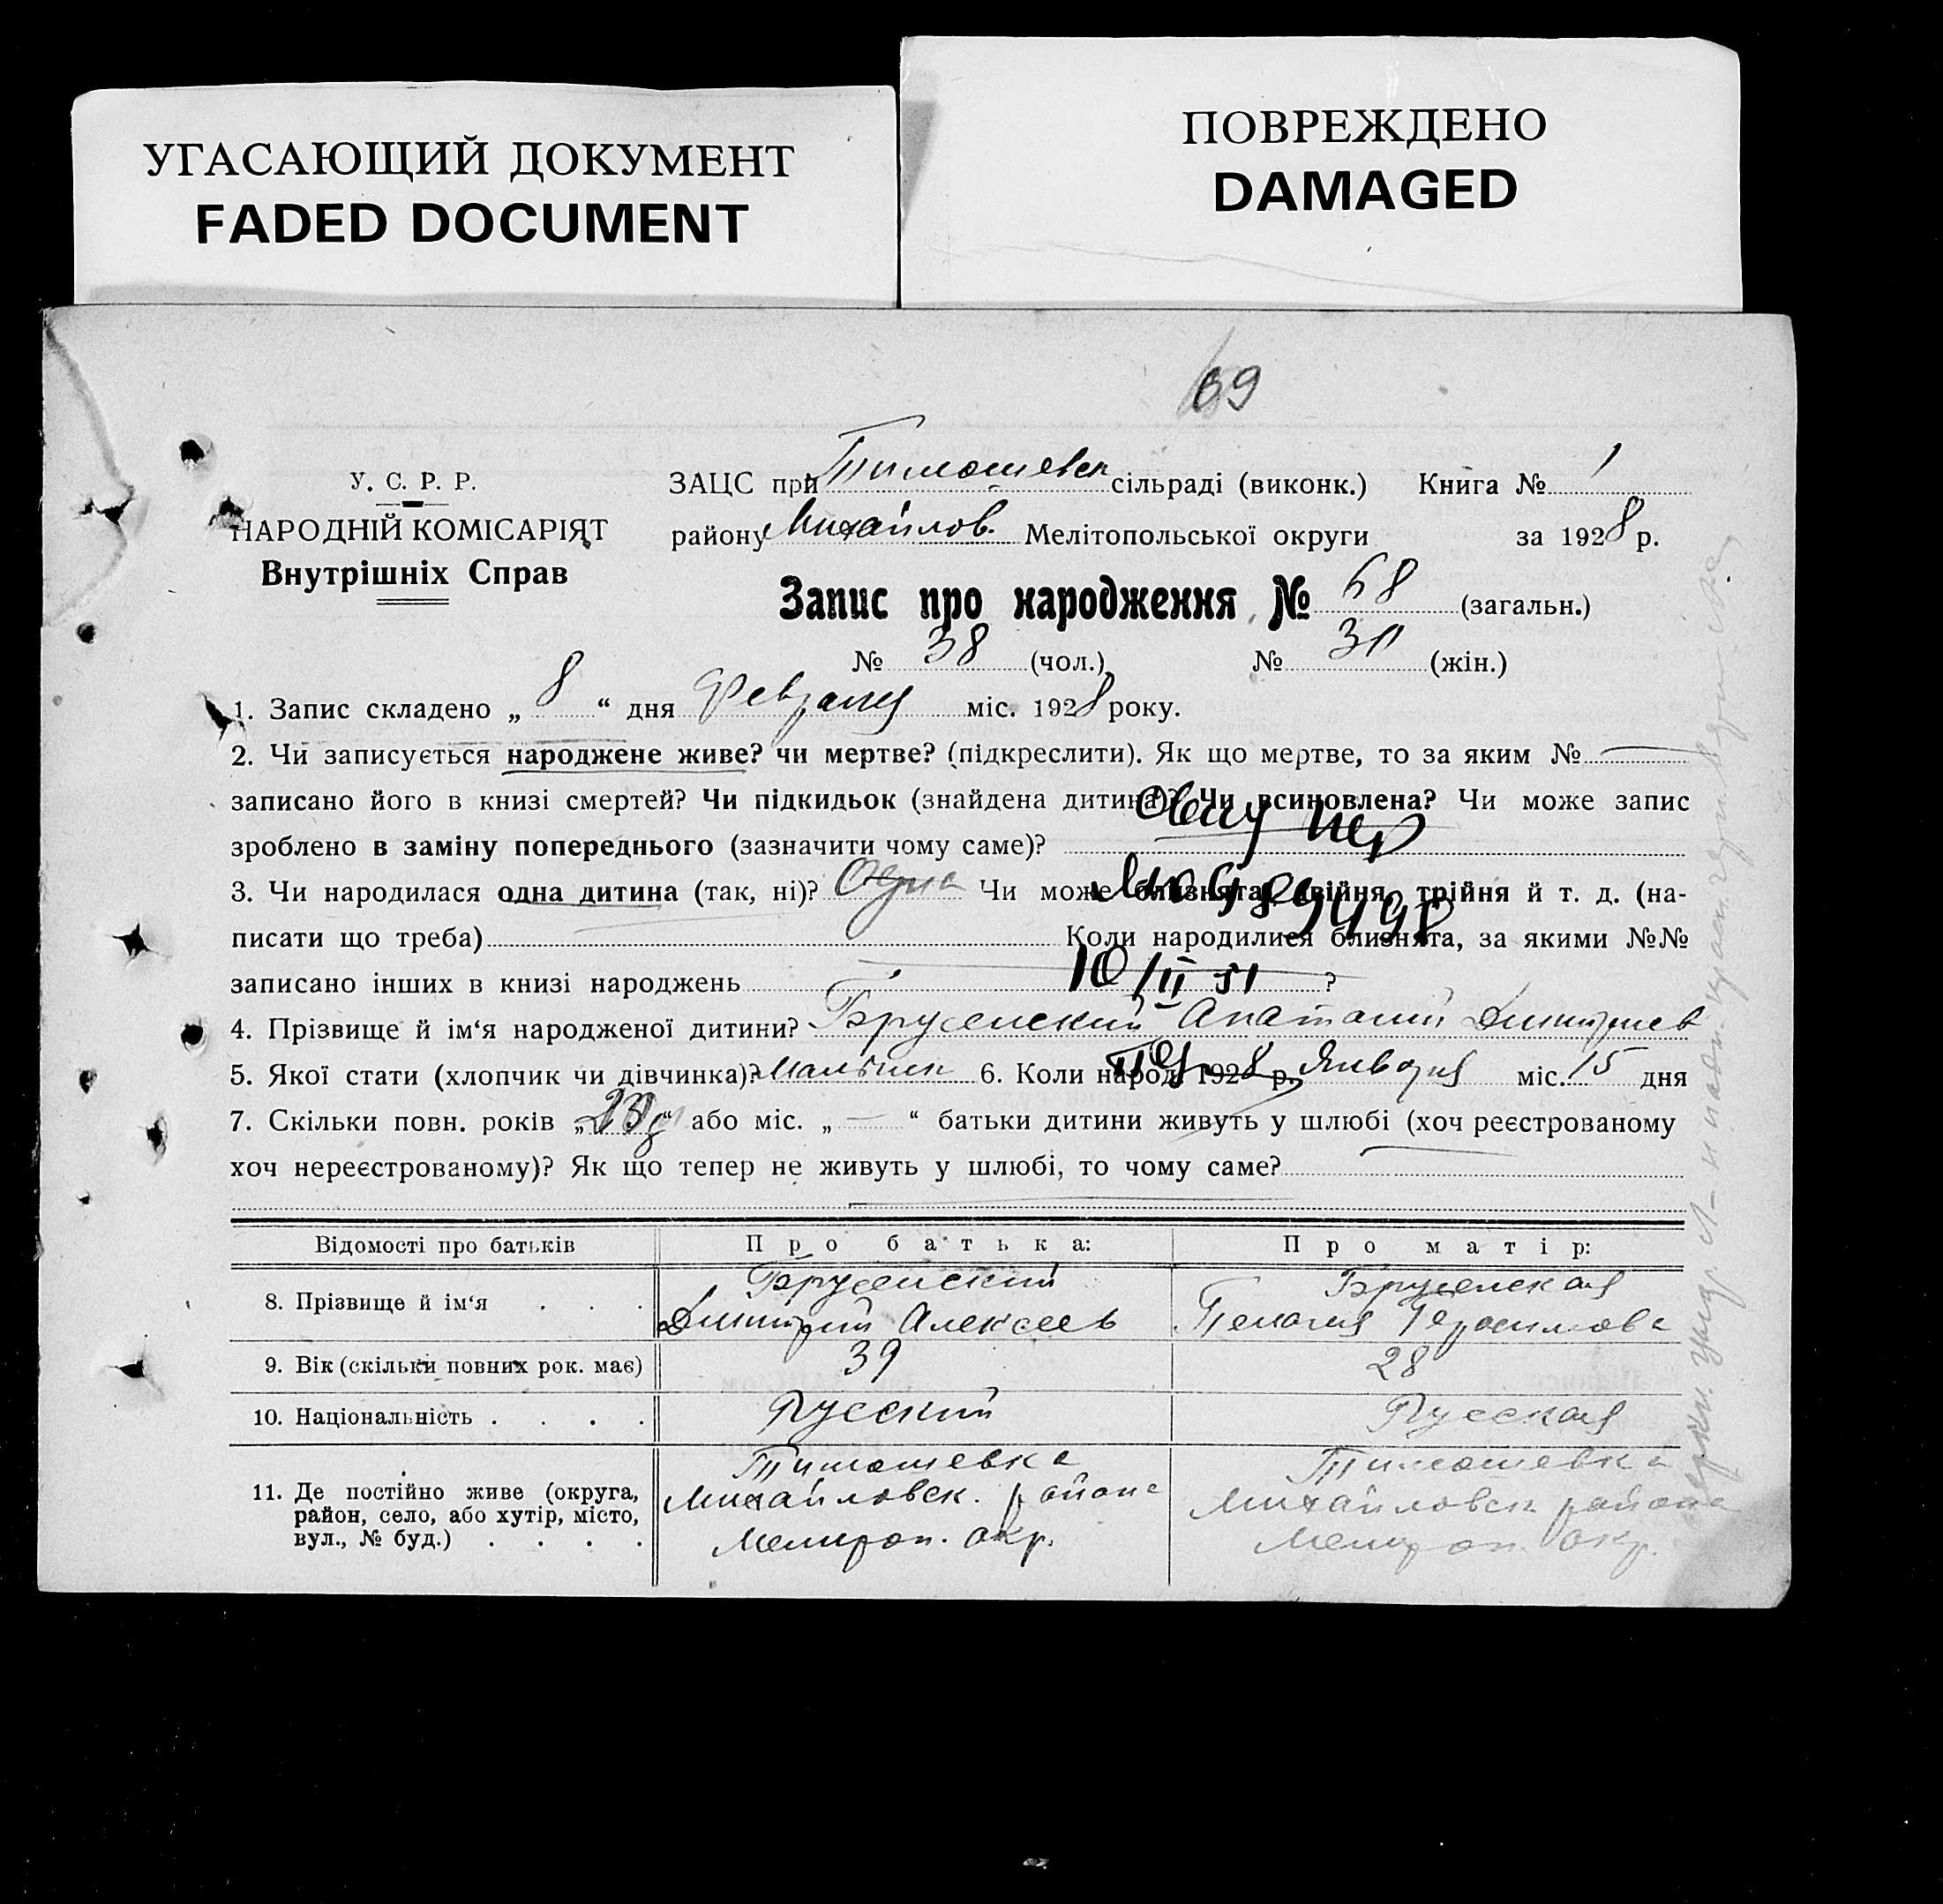 УГАСАЮЩИЙ ДОКУМЕНТ
FADED DOCUMENT
ПОВРЕЖДЕНО
DAMAGED
69
У. С. Р. Р.
НАРОДНІЙ КОМІСАРІЯТ
Внутрішніх Справ
ЗАЦС при Тимошевск сільраді (виконк.) Книга № 1
району Михайлов. Мелітопольської округи за 1928 р.
Запис про народження № 68 (загальн.)
№ 38 (чол.) № 30 (жін.)
1. Запис складено „ 8 “ дня Февраля міс. 1928 року.
2. Чи записується народжене живе? чи мертве? (підкреслити). Як що мертве, то за яким №
записано його в книзі смертей? Чи підкидьок (знайдена дитина)? Чи всиновлена? Чи може запис
зроблено в заміну попереднього (зазначити чому саме)?
3. Чи народилася одна дитина (так, ні)? Одна Чи може близнята, двійня, трійня й т. д. (на-
писати що треба) Коли народилися близнята, за якими №№
записано інших в книзі народжень ?
10/II 51
4. Прізвище й ім‘я народженої дитини? Анатолий Дмитриев
5. Якої стати (хлопчик чи дівчинка)? Мальчик 6. Коли народ. 1928 р. Января міс. 15 дня
7. Скільки повн. років „ “ або міс. „ — “ батьки дитини живуть у шлюбі (хоч реєстрованому
хоч нереєстрованому)? Як що тепер не живуть у шлюбі, то чому саме?
Відомості про батьків
Про батька:
Про матір:
8. Прізвище й ім‘я . . .
Дмитрий Алексеев
Пелагия Герасимова
9. Вік (скільки повних рок. має)
39
28
10. Національність . . . .
Русский
Русская
11. Де постійно живе (округа,
район, село, або хутір, місто,
вул., № буд.) . . . .
Тимошевка
Михайловск. района
Мелитоп. окр.
Тимошевка
Михайловск района
Мелитоп. окр.